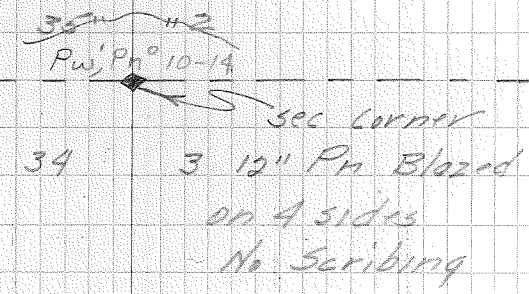 35 2
10-14
sec corner
34 3 12" Pn Blazed
on 4 sides
No Scribing